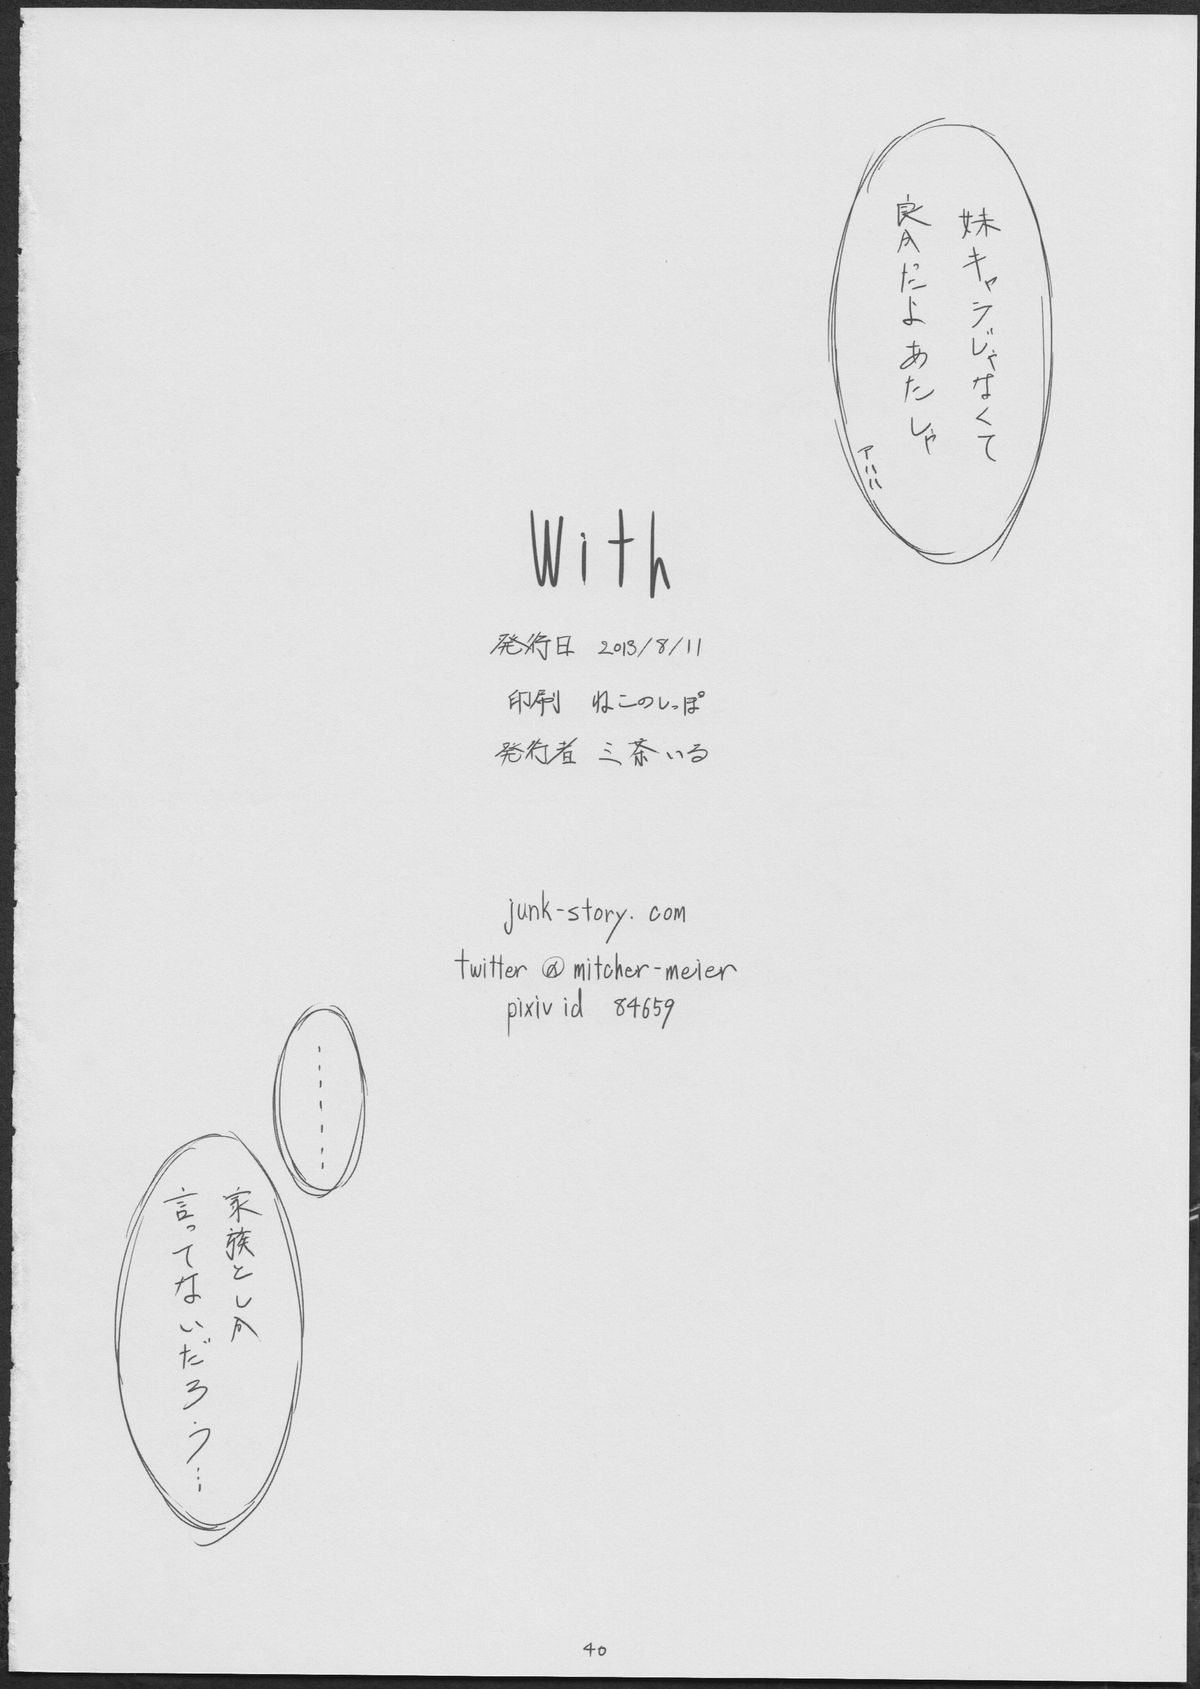 妹キャラじゃなくて
良かったよ あたしゃ
アハハ
With
発行日 2013/8/11
印刷 ねこのしっぽ
発行者 三茶いる
junk-story.com
twitter @mitcher-meier
pixiv id 84659
・・・・・・・
家族としか
言ってないだろう…
40